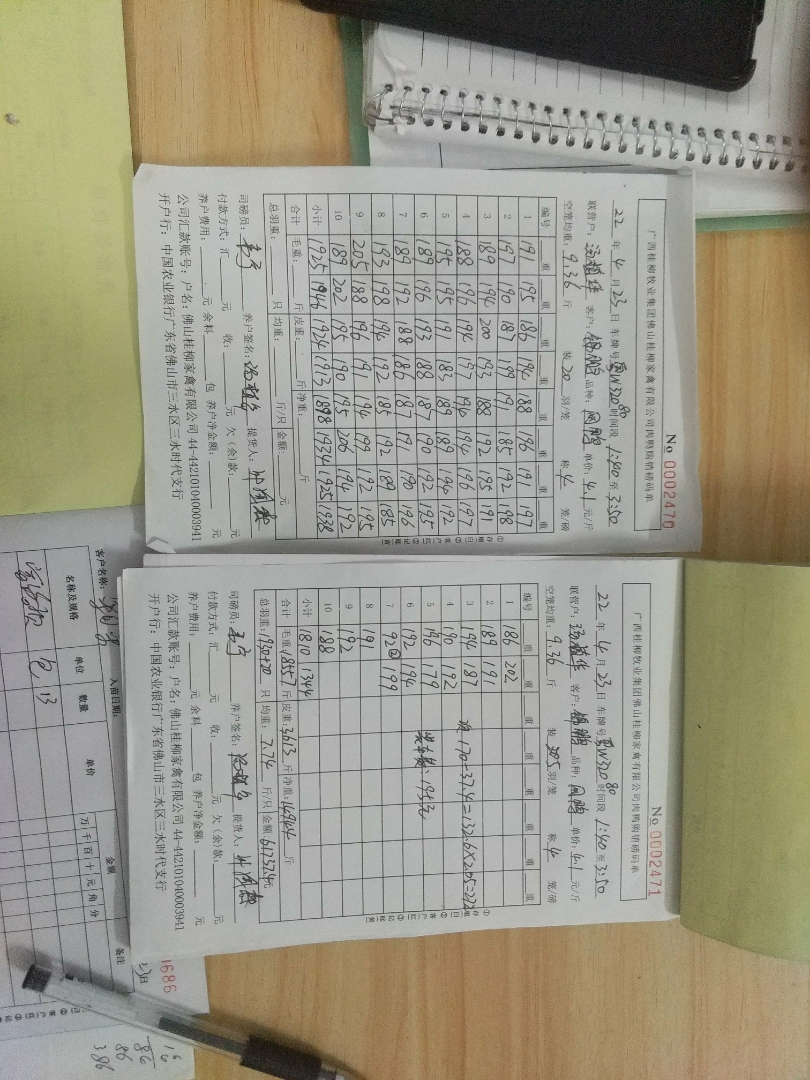 广西桂柳牧业集团佛山桂柳家禽有限公司肉鸭购销磅码单
No 0002470
22 年 4 月 23 日 车牌号 W32080 时间段 1:40 至 3:50
联营户: 客户: 品种: 单价: 4.1 元/斤
空笼均重: 9.36 斤 装 20 羽/笼 称 4 笼/磅
编号 重 重 重 重 重 重 重 重
1 191 195 186 194 188 196 191 197
2 197 190 187 199 191 185 192 198
3 189 194 200 193 188 192 195 191
4 188 196 194 197 194 194 196 197
5 195 195 191 183 189 189 194 192
6 189 196 193 188 187 190 192 195
7 189 192 188 186 187 191 190 196
8 193 198 194 192 185 192 189 185
9 205 188 196 191 194 199 192 195
10 189 202 195 190 195 206 194 192
小计 1925 1946 1924 1913 1898 1934 1925 1938
合计 毛重: 斤 皮重: 斤 净重: 斤
总羽重: 只 均重: 斤/只 金额: 元
司磅员: 养户签名: 提货人:
付款方式: 汇 元 收: 元 欠(余)款: 元
养户费用: 元 余料 包 养户净金额: 元
公司汇款账号: 户名: 佛山桂柳家禽有限公司 44-442101040003941
开户行: 中国农业银行广东省佛山市三水区三水时代支行
广西桂柳牧业集团佛山桂柳家禽有限公司肉鸭购销磅码单
No 0002471
22 年 4 月 23 日 车牌号 W32080 时间段 1:40 至 3:50
联营户: 客户: 品种: 单价: 4.1 元/斤
空笼均重: 9.36 斤 装 羽/笼 称 4 笼/磅
编号 重 重 重 重 重 重 重 重
1 186 202
2 189 191
3 194 187 170-37.4=132.6×2.05=272
4 190 192
5 196 179
6 192 194
7 92② 199
8 191
9 192
10 188
小计 1810 1344
合计 毛重: 18557 斤 皮重: 3613 斤 净重: 14944 斤
总羽重: 1930+20 只 均重: 7.74 斤/只 金额: 元
司磅员: 养户签名: 提货人:
付款方式: 汇 元 收: 元 欠(余)款: 元
养户费用: 元 余料 包 养户净金额: 元
公司汇款账号: 户名: 佛山桂柳家禽有限公司 44-442101040003941
开户行: 中国农业银行广东省佛山市三水区三水时代支行
1686
客户名称: 入苗日期:
名称及规格 单位 数量 单价 金额 备注
万 千 百 十 元 角 分
包 13
16
86
86
386